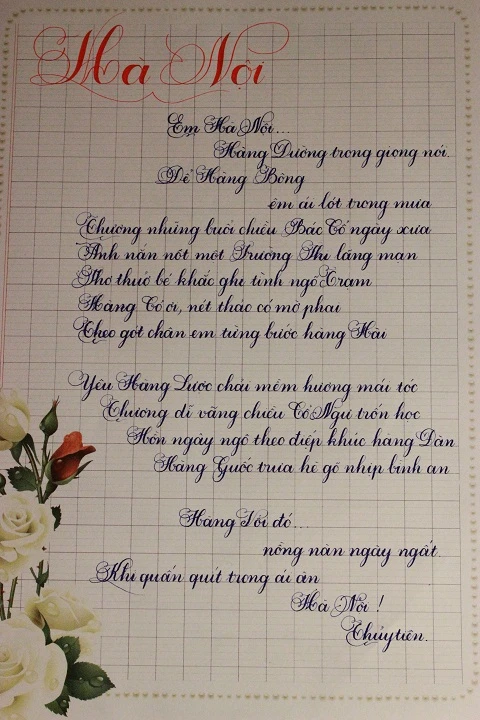 Hà Nội
Em Hà Nội...
Hàng Đường trong giọng nói.
Để Hàng Bông
êm ái lót trong mưa
Thương những buổi chiều Bác Cổ ngày xưa
Anh nắn nót một Trường Thi lãng mạn
Thơ thuở bé khắc ghi tình ngõ Trạm
Hàng Cỏ ơi, nét thảo có mờ phai
Theo gót chân em từng bước hàng Hài
Yêu Hàng Lược chải mềm hương mái tóc
Thương dĩ vãng chiều Cổ Ngư trốn học
Hồn ngây ngô theo điệp khúc hàng Đàn
Hàng Guốc trưa hè gõ nhịp bình an
Hàng Vôi đó...
nồng nàn ngây ngất.
Khi quấn quít trong ái ân
Hà Nội !
Thủy tiên.